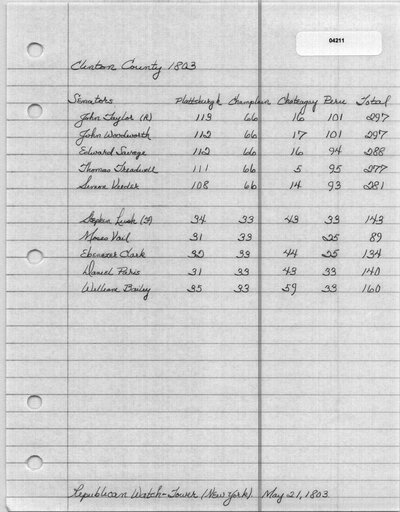 04211
Clinton County 1803
Senators Plattsburgh Champlain Chateaguy Peru Total
John Taylor (R) 113 66 16 101 297
John Woodworth 112 66 17 101 297
Edward Savage 112 66 16 94 288
Thomas Treadwell 111 66 5 95 277
Simeon Veeder 108 66 14 93 281
Stephen Lush (F) 34 33 43 33 143
Moses Vail 31 33 25 89
Ebenezer Clark 32 33 44 25 134
Daniel Paris 31 33 43 33 140
William Bailey 35 33 59 33 160
Republican Watch-Tower (New York). May 21, 1803